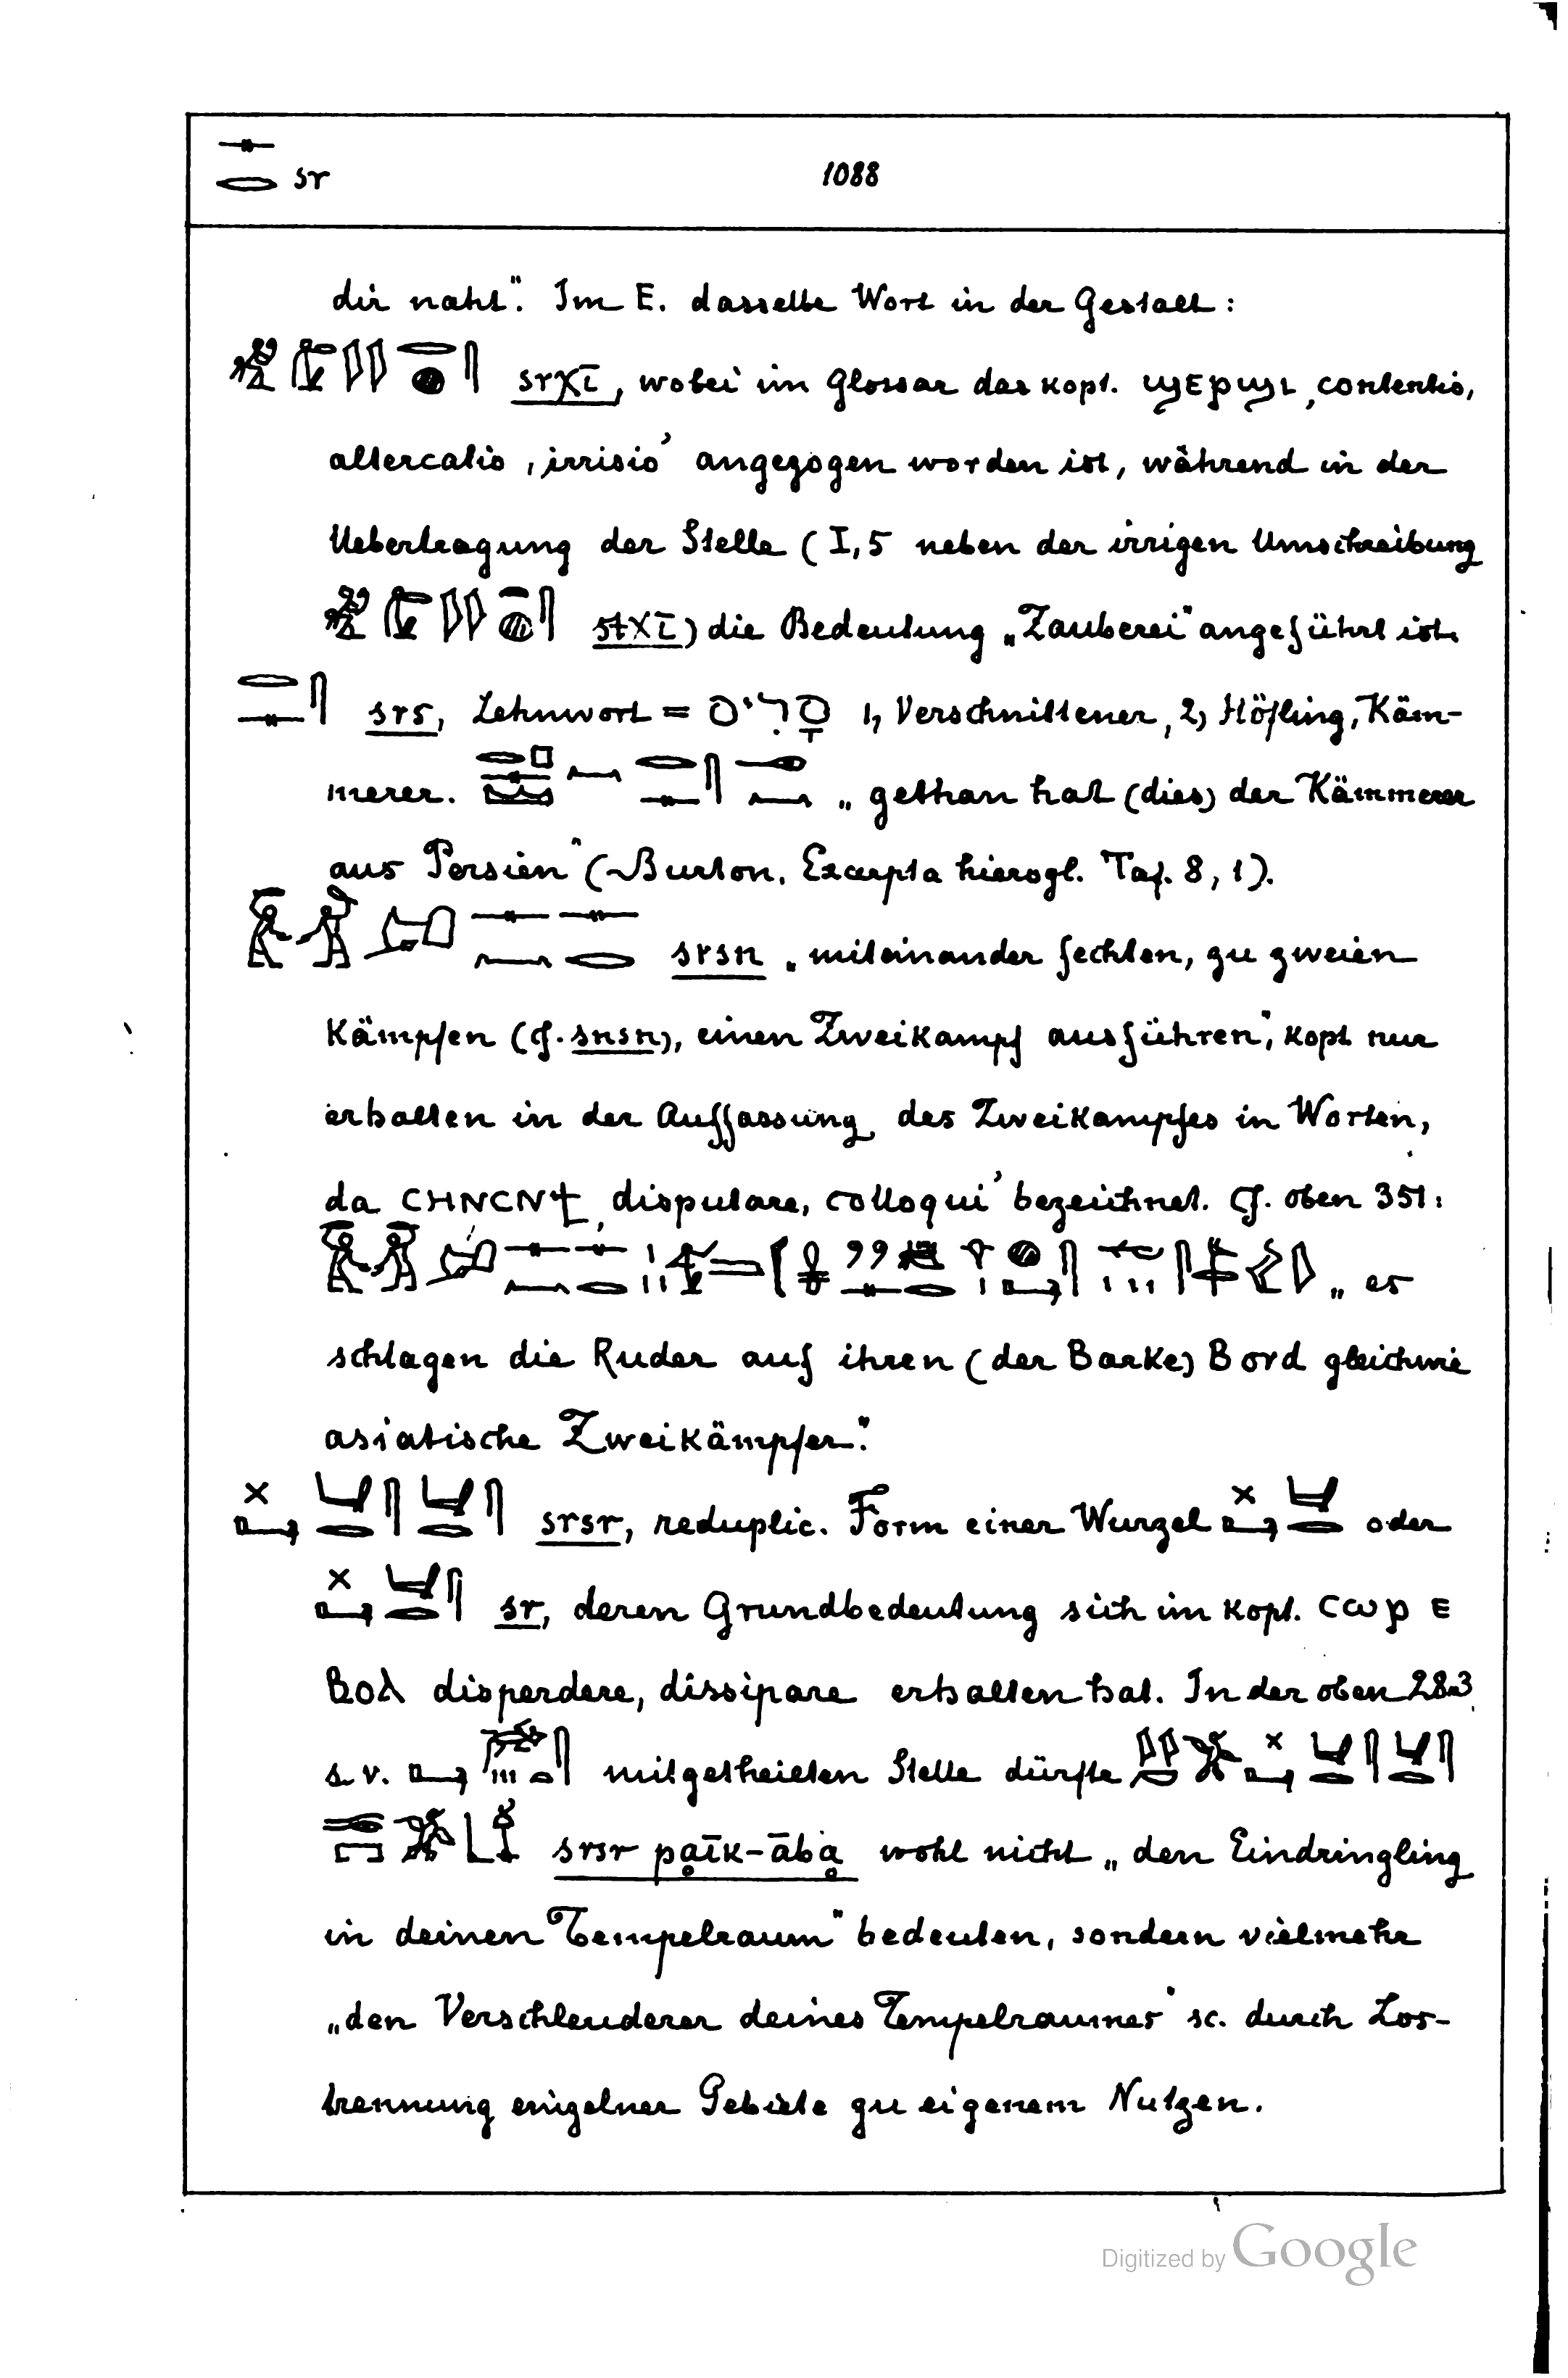 sr 1088
dir naht“. Im E. dasselbe Wort in der Gestalt:
srχī, wobei im Glossar das kopt. ϣⲉⲣϣⲓ ‚contentio,
altercatio, irrisio’ angezogen worden ist, während in der
Uebertragung der Stelle (I,5 neben der irrigen Umschreibung
stχī) die Bedeutung „Zauberei“ angeführt ist.
srs, Lehnwort = סָרִיס 1, Verschnittener, 2) Höfling, Käm-
merer. „gethan hat (dies) der Kämmerer
aus Persien“ (Burton, Excerpta hierogl. Taf. 8, 1).
srsn „miteinander fechten, zu zweien
Kämpfen (cf. snsn), einen Zweikampf ausführen“, kopt nur
erhalten in der Auffassung des Zweikampfes in Worten,
da ⲥⲏⲛⲥⲛϯ ‚disputare, colloqui’ bezeichnet. Cf. oben 351:
„es
schlagen die Ruder auf ihren (der Barke) Bord gleichwie
asiatische Zweikämpfer“.
srsr, reduplic. Form einer Wurzel oder
sr, deren Grundbedeutung sich im kopt. ⲥⲱⲣ ⲉ
ⲃⲟⲗ disperdere, dissipare erhalten hat. In der oben 283
s. v. mitgetheilten Stelle dürfte
srsr pḁīk-ābḁ wohl nicht „den Eindringling
in deinen Tempelraum“ bedeuten, sondern vielmehr
„den Verschleuderer deines Tempelraumes“ sc. durch Los-
trennung einzelner Gebiete zu eigenem Nutzen.
Digitized by Google